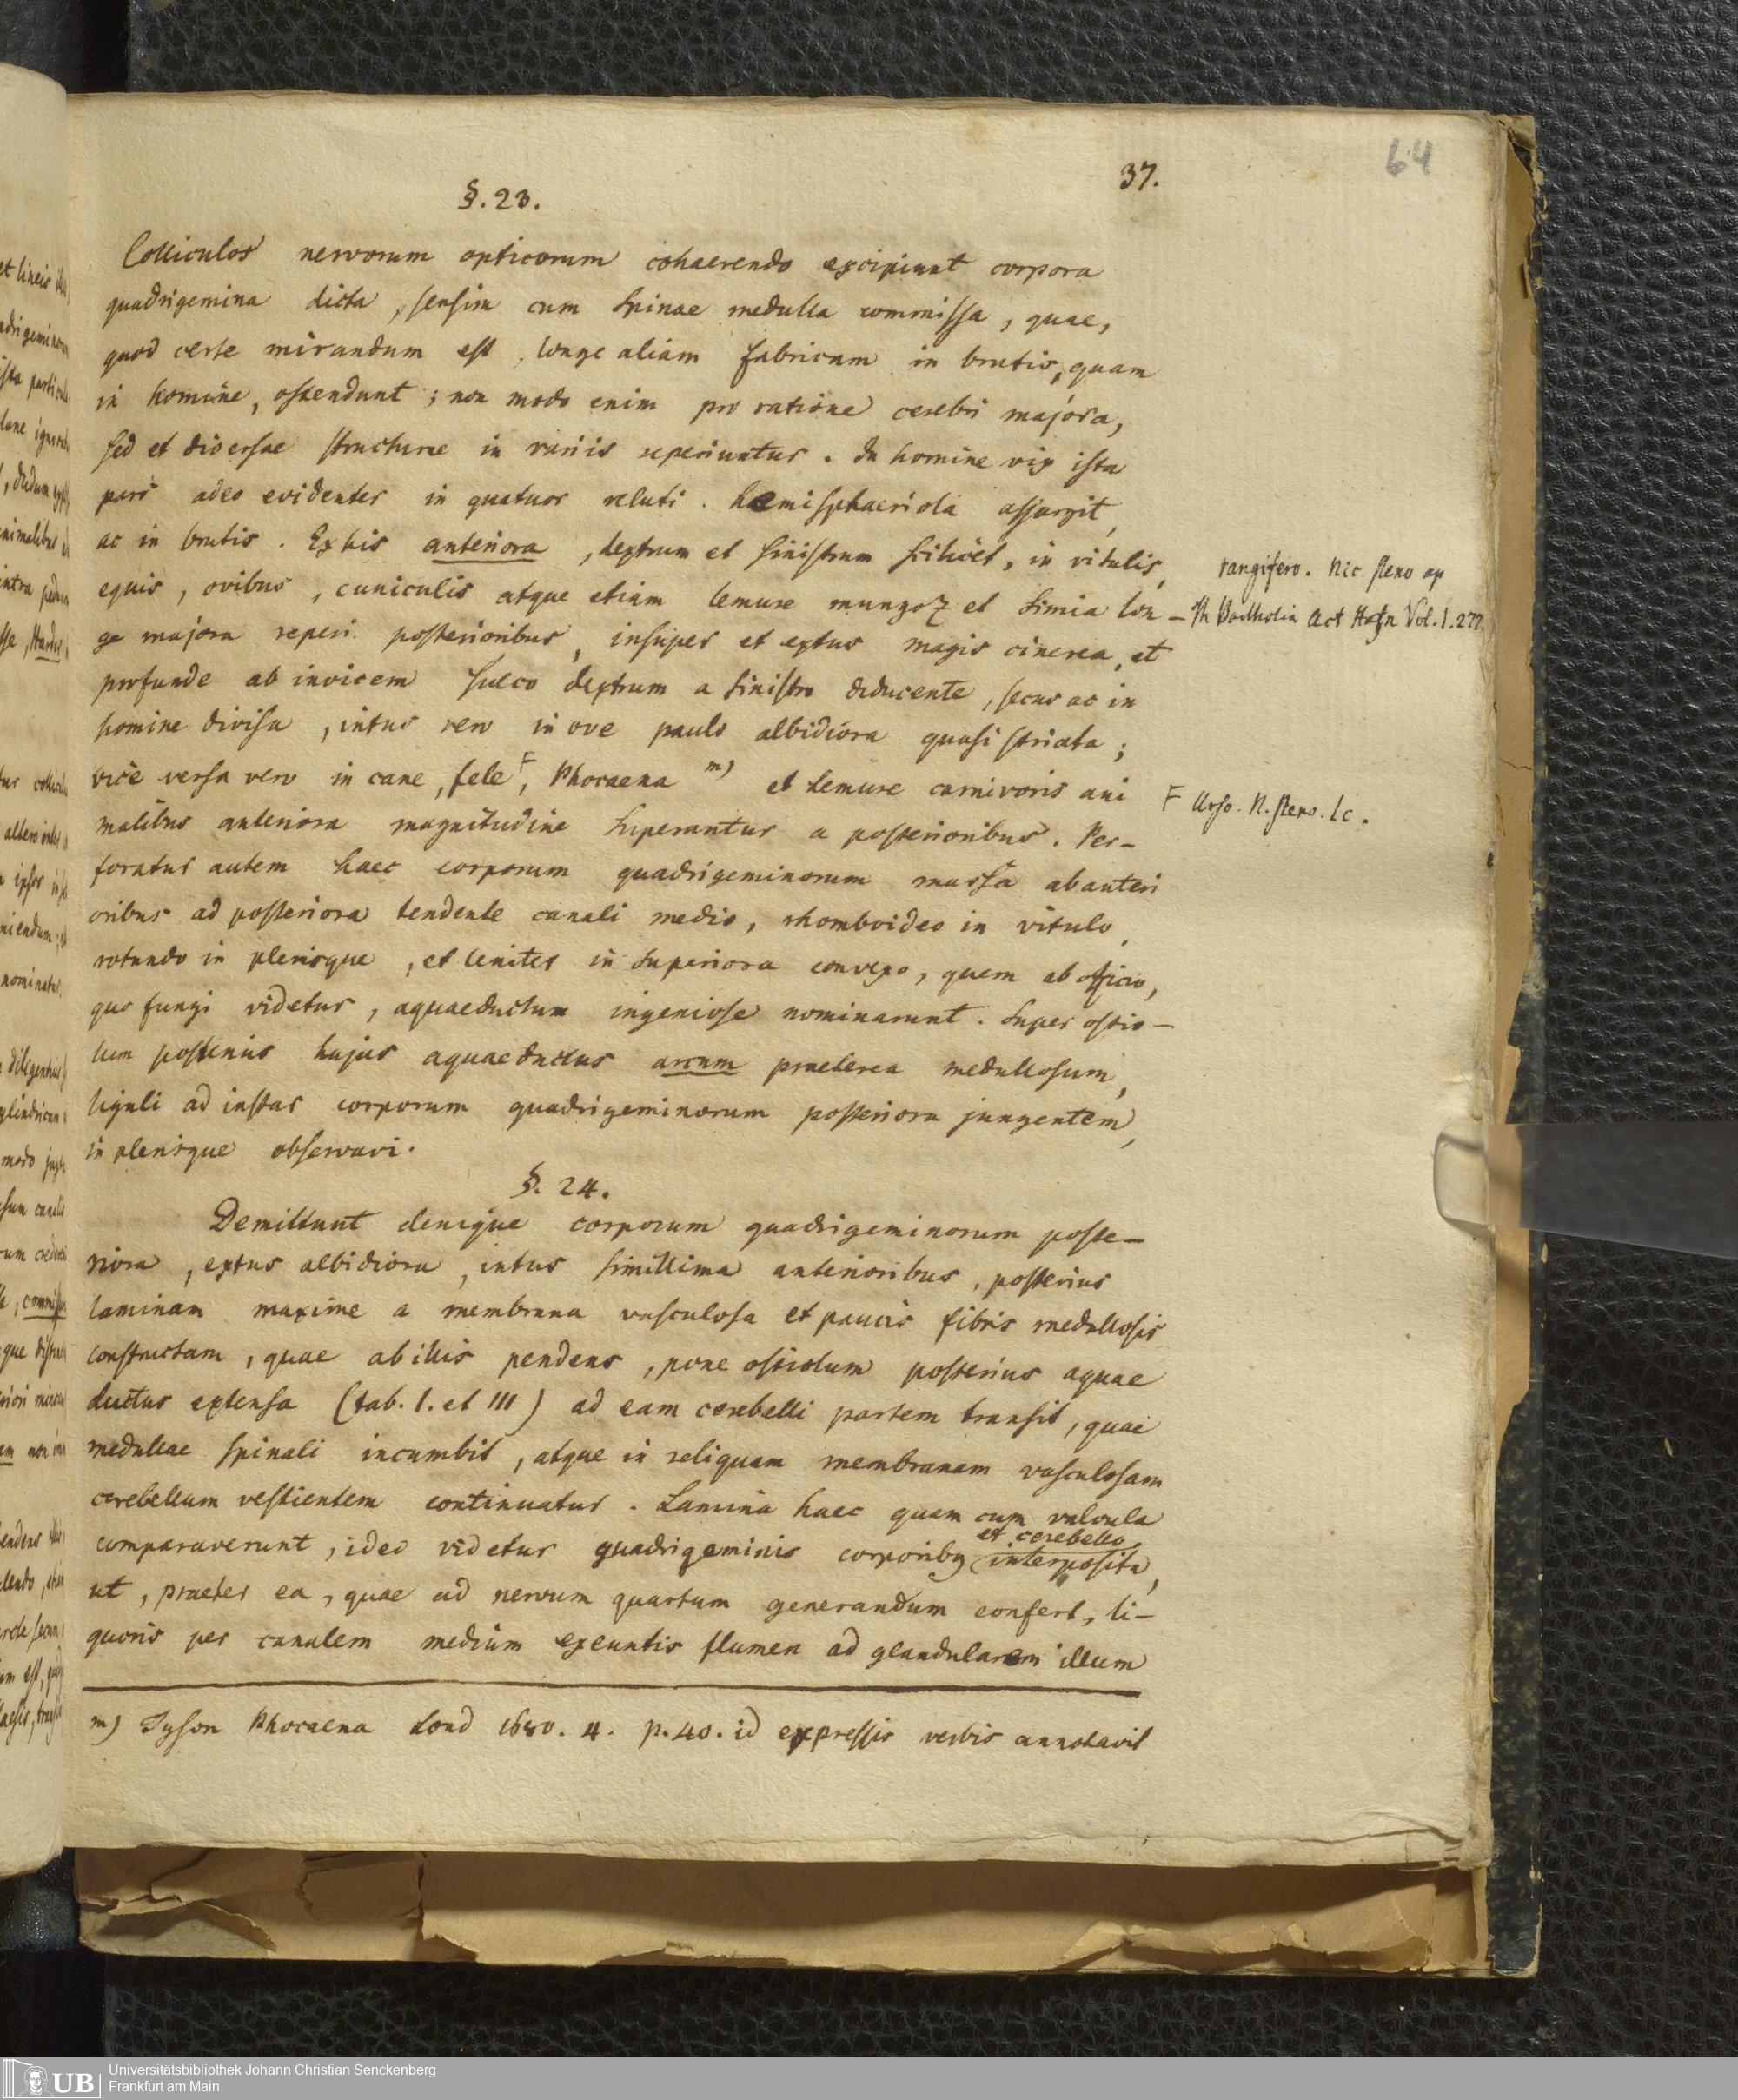 64
37.
§. 23.
Colliculos nervorum opticorum cohaerendo excipiunt corpora
quadrigemina dicta, sensim cum Spinae medulla commissa, quae,
quod certe mirandum est, longe aliam fabricam in brutis, quam
in homine, ostendunt; non modo enim pro ratione cerebri majora,
sed et diversae structurae in variis reperiuntur. In homine vix ista
pars adeo evidenter in quatuor veluti hemisphaeriola assurgit,
ac in brutis. Ex his anteriora, dextrum et sinistrum scilicet, in vitulis,
equis, ovibus, cuniculis atque etiam lemure mungoz et Simia lon-
ge majora reperi posterioribus, insuper et extus magis cinerea, et
profunde ab invicem sulco dextrum a sinistro diducente, secus ac in
homine divisa, intus vero in ove paulo albidiora quasi striata;
vice versa vero in cane, fele F, Phocaena m) et Lemure carnivoris ani
malibus anteriora magnitudine superantur a posterioribus. Per-
foratur autem haec corporum quadrigeminorum massa ab anteri
oribus ad posteriora tendente canali medio, rhomboideo in vitulo,
rotundo in plerisque, et leniter in superiora convexo, quem ab officio,
quo fungi videtur, aquaeductum ingeniose nominarunt. Super ostio-
lum posterius hujus aquaeductus arcum praeterea medullosum,
liguli ad instar corporum quadrigeminorum posteriora jungentem,
in plerisque observavi.
§. 24.
Demittunt denique corporum quadrigeminorum poste-
riora, extus albidiora, intus simillima anterioribus, posterius
laminam maxime a membrana vasculosa et paucis fibris medullosis
constructam, quae ab illis pendens, pone ostiolum posterius aquae
ductus extensa (tab. I. et III) ad eam cerebelli partem transit, quae
medullae spinali incumbit, atque in reliquam membranam vasculosam
cerebellum vestientem continuatur. Lamina haec quam cum valvula
comparaverunt, ideo videtur quadrigeminis corporibq et cerebello interposita,
ut, praeter ea, quae ad nervum quartum generandum confert, li-
quoris per canalem medium exeuntis flumen ad glandularem illum
m) Tyson Phocaena Lond 1680. 4. p. 40. id expressis verbis annotavit
rangifero. Nic steno ap
Th Bartholin Act Hafn Vol. I. 277.
F Urso. N. steno. lc.
Universitätsbibliothek Johann Christian Senckenberg
Frankfurt am Main
UB